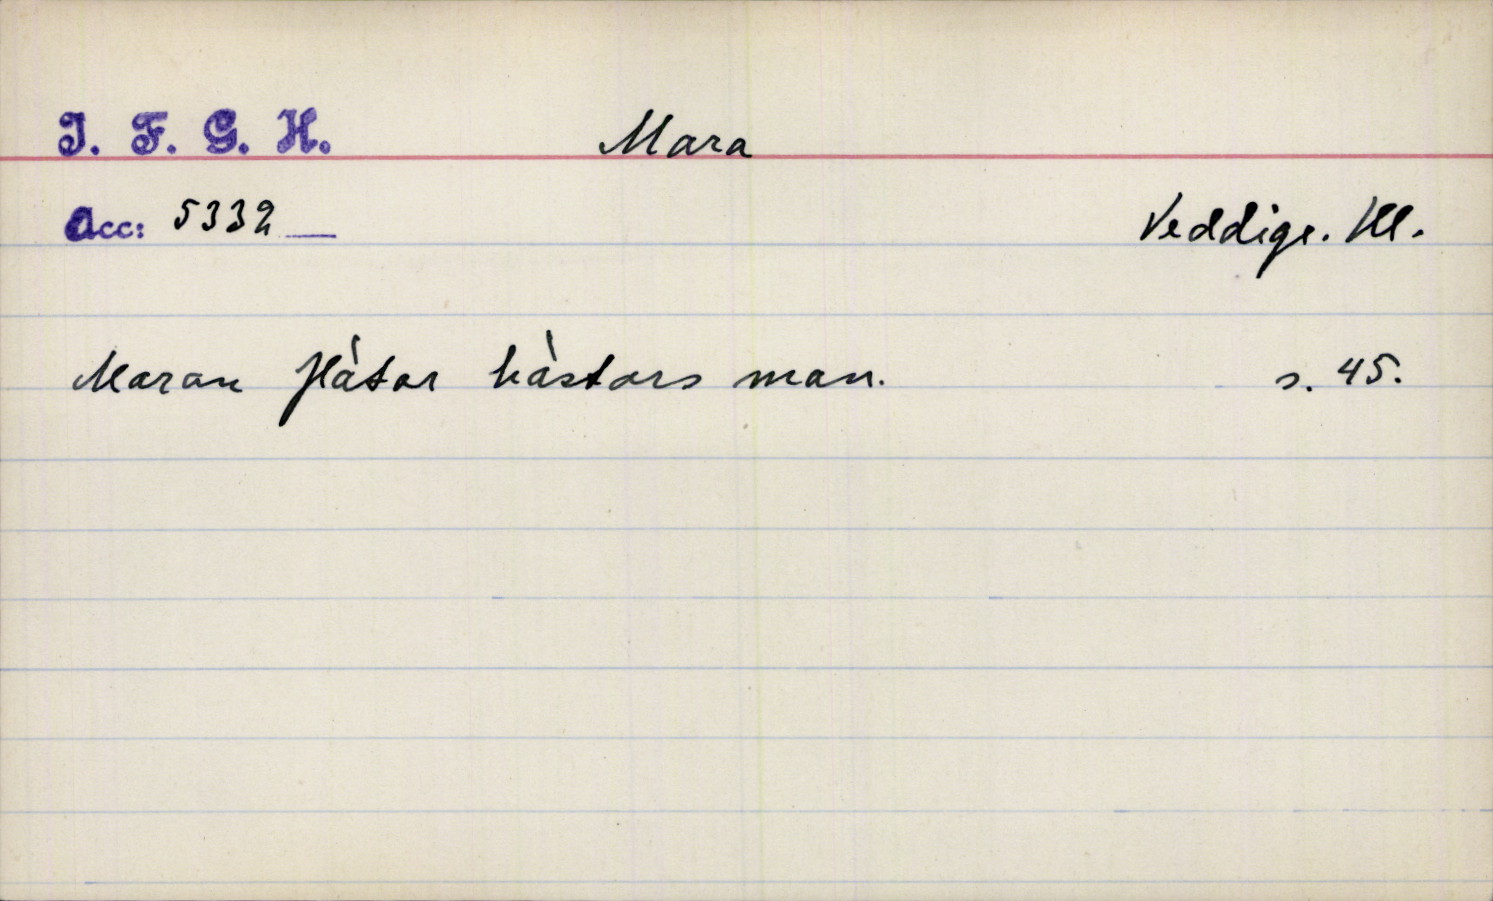 I. F. G. H.
Mara
Acc: 5332
Veddige. Hl.
Maran flätar hästars man.
s. 45.